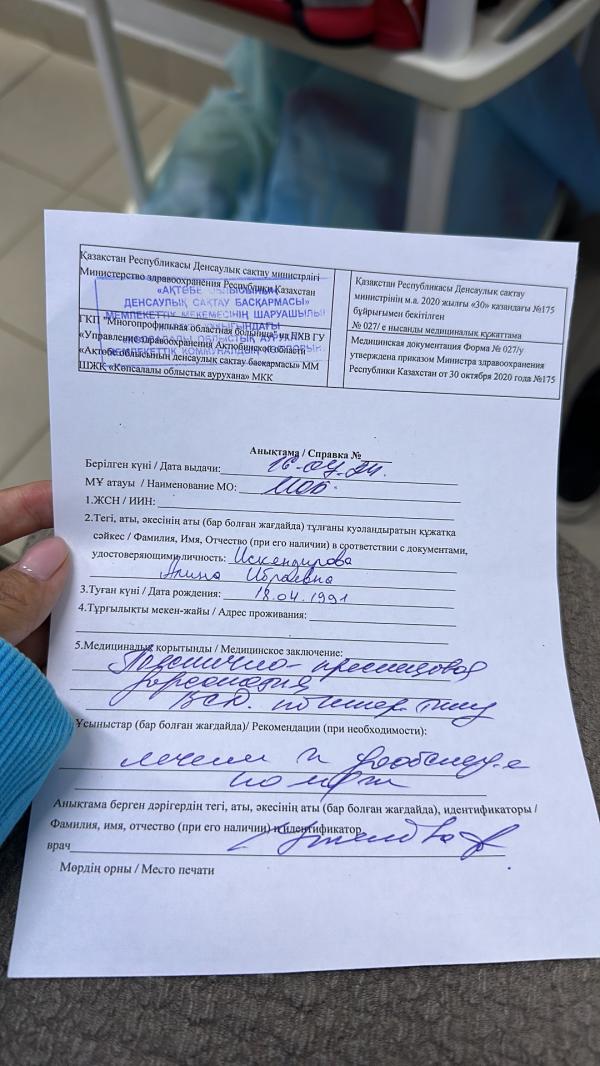 Қазақстан Республикасы Денсаулық сақтау министрлігі
Министерство здравоохранения Республики Казахстан
«АҚТӨБЕ ОБЛЫСЫНЫҢ
ДЕНСАУЛЫҚ САҚТАУ БАСҚАРМАСЫ»
МЕМЛЕКЕТТІК МЕКЕМЕСІНІҢ ШАРУАШЫЛЫҚ
ГКП "Многопрофильная областная больница" на ПХВ ГУ
«Управление здравоохранения Актюбинской области»
«Ақтөбе облысының денсаулық сақтау басқармасы» ММ
ШЖҚ «Көпсалалы облыстық аурухана» МКК
Қазақстан Республикасы Денсаулық сақтау
министрінің м.а. 2020 жылғы «30» қазандағы №175
бұйрығымен бекітілген
№ 027/ е нысанды медициналық құжаттама
Медицинская документация Форма № 027/у
утверждена приказом Министра здравоохранения
Республики Казахстан от 30 октября 2020 года №175
Анықтама / Справка №
Берілген күні / Дата выдачи: 16.07.24.
МҰ атауы / Наименование МО: МОБ.
1.ЖСН / ИИН:
2.Тегі, аты, әкесінің аты (бар болған жағдайда) тұлғаны куәландыратын құжатқа
сәйкес / Фамилия, Имя, Отчество (при его наличии) в соответствии с документами,
удостоверяющими личность: Искендирова
Алина Ибраевна
3.Туған күні / Дата рождения: 18.04.1991
4.Тұрғылықты мекен-жайы / Адрес проживания:
5.Медициналық қорытынды / Медицинское заключение:
Пояснично-крестцовая
дорсопатия
ВСД. по гипер. типу
Ұсыныстар (бар болған жағдайда)/ Рекомендации (при необходимости):
лечение и дообслед-е
Анықтама берген дәрігердің тегі, аты, әкесінің аты (бар болған жағдайда), идентификаторы /
Фамилия, имя, отчество (при его наличии) и идентификатор
врач
Мөрдің орны / Место печати